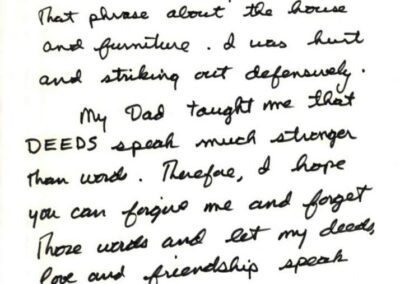 That phrase about the house
and furniture. I was hurt
and striking out defensively.
My Dad taught me that
DEEDS speak much stronger
than words. Therefore, I hope
you can forgive me and forget
those words and let my deeds,
love and friendship speak